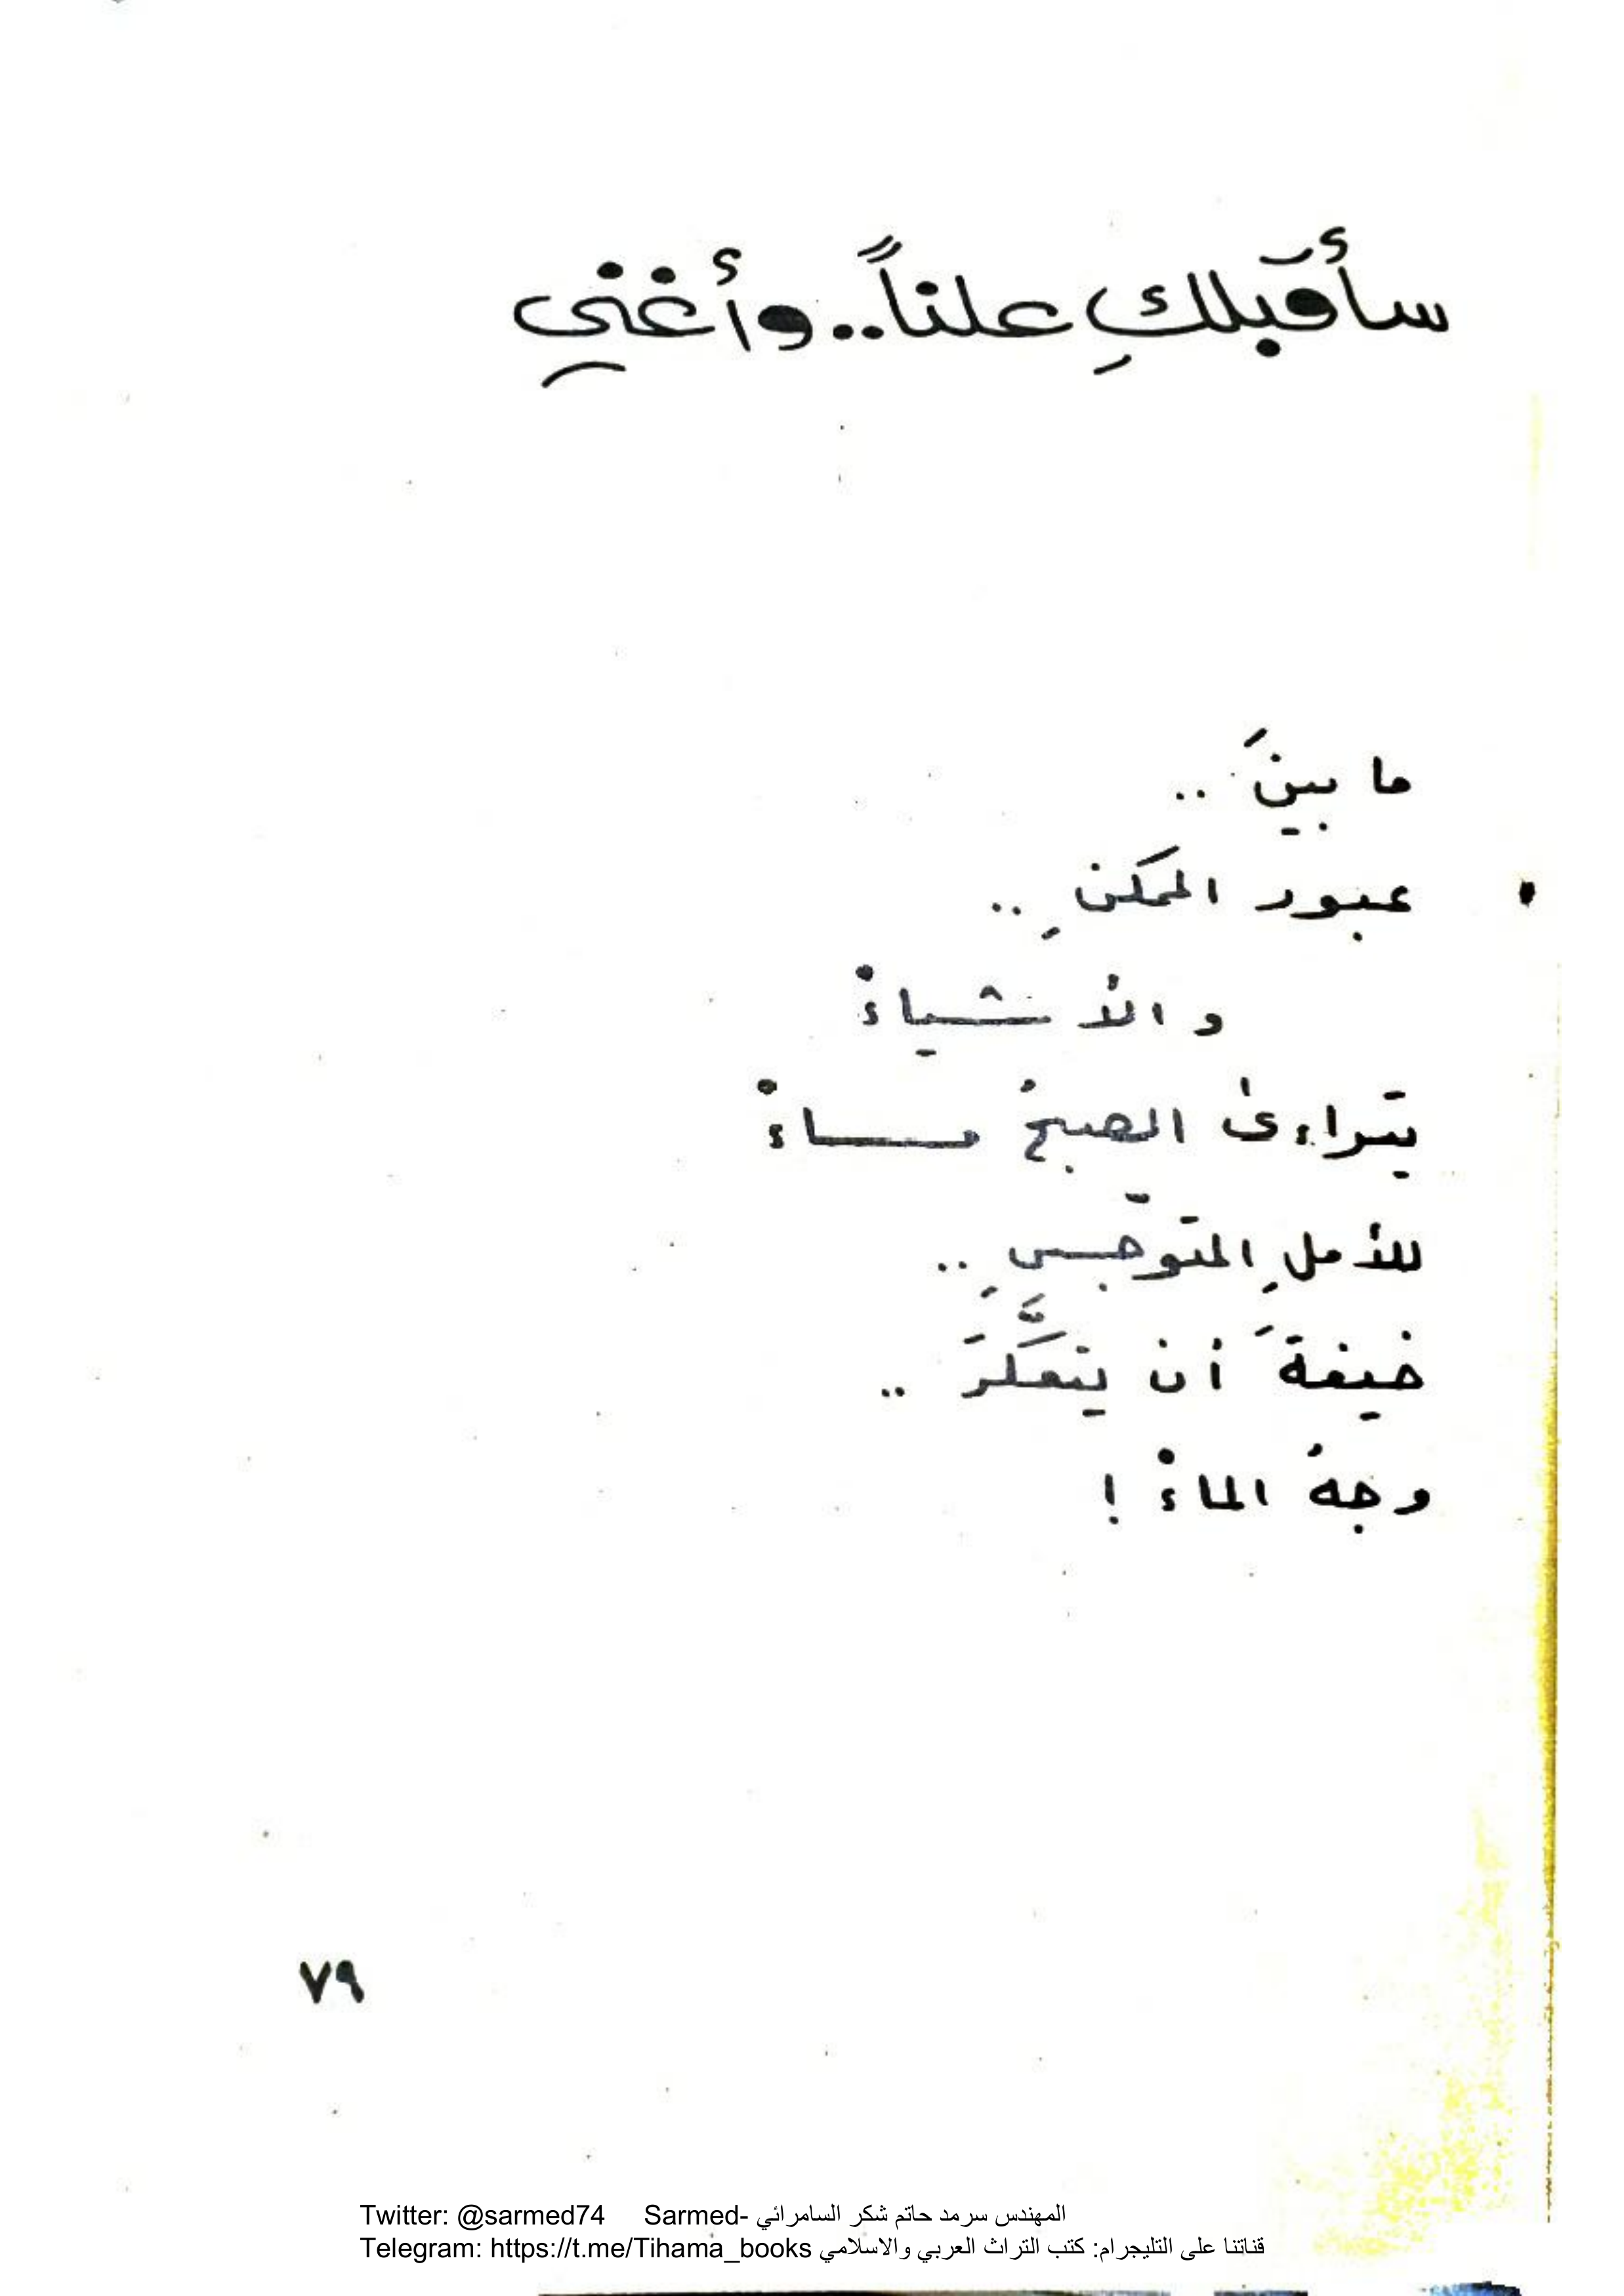 سأقبلكِ علناً.. وأغني
ما بينَ ..
عبور الممكنِ ..
والأشياءْ
يتراءىٰ الصبحُ مساءْ
للأملِ المتوجّسِ ..
خيفةَ أن يتعكَّرَ ..
وجهُ الماءْ !
٧٩
Twitter: @sarmed74 Sarmed- المهندس سرمد حاتم شكر السامرائي
Telegram: https://t.me/Tihama_books قناتنا على التليجرام: كتب التراث العربي والاسلامي